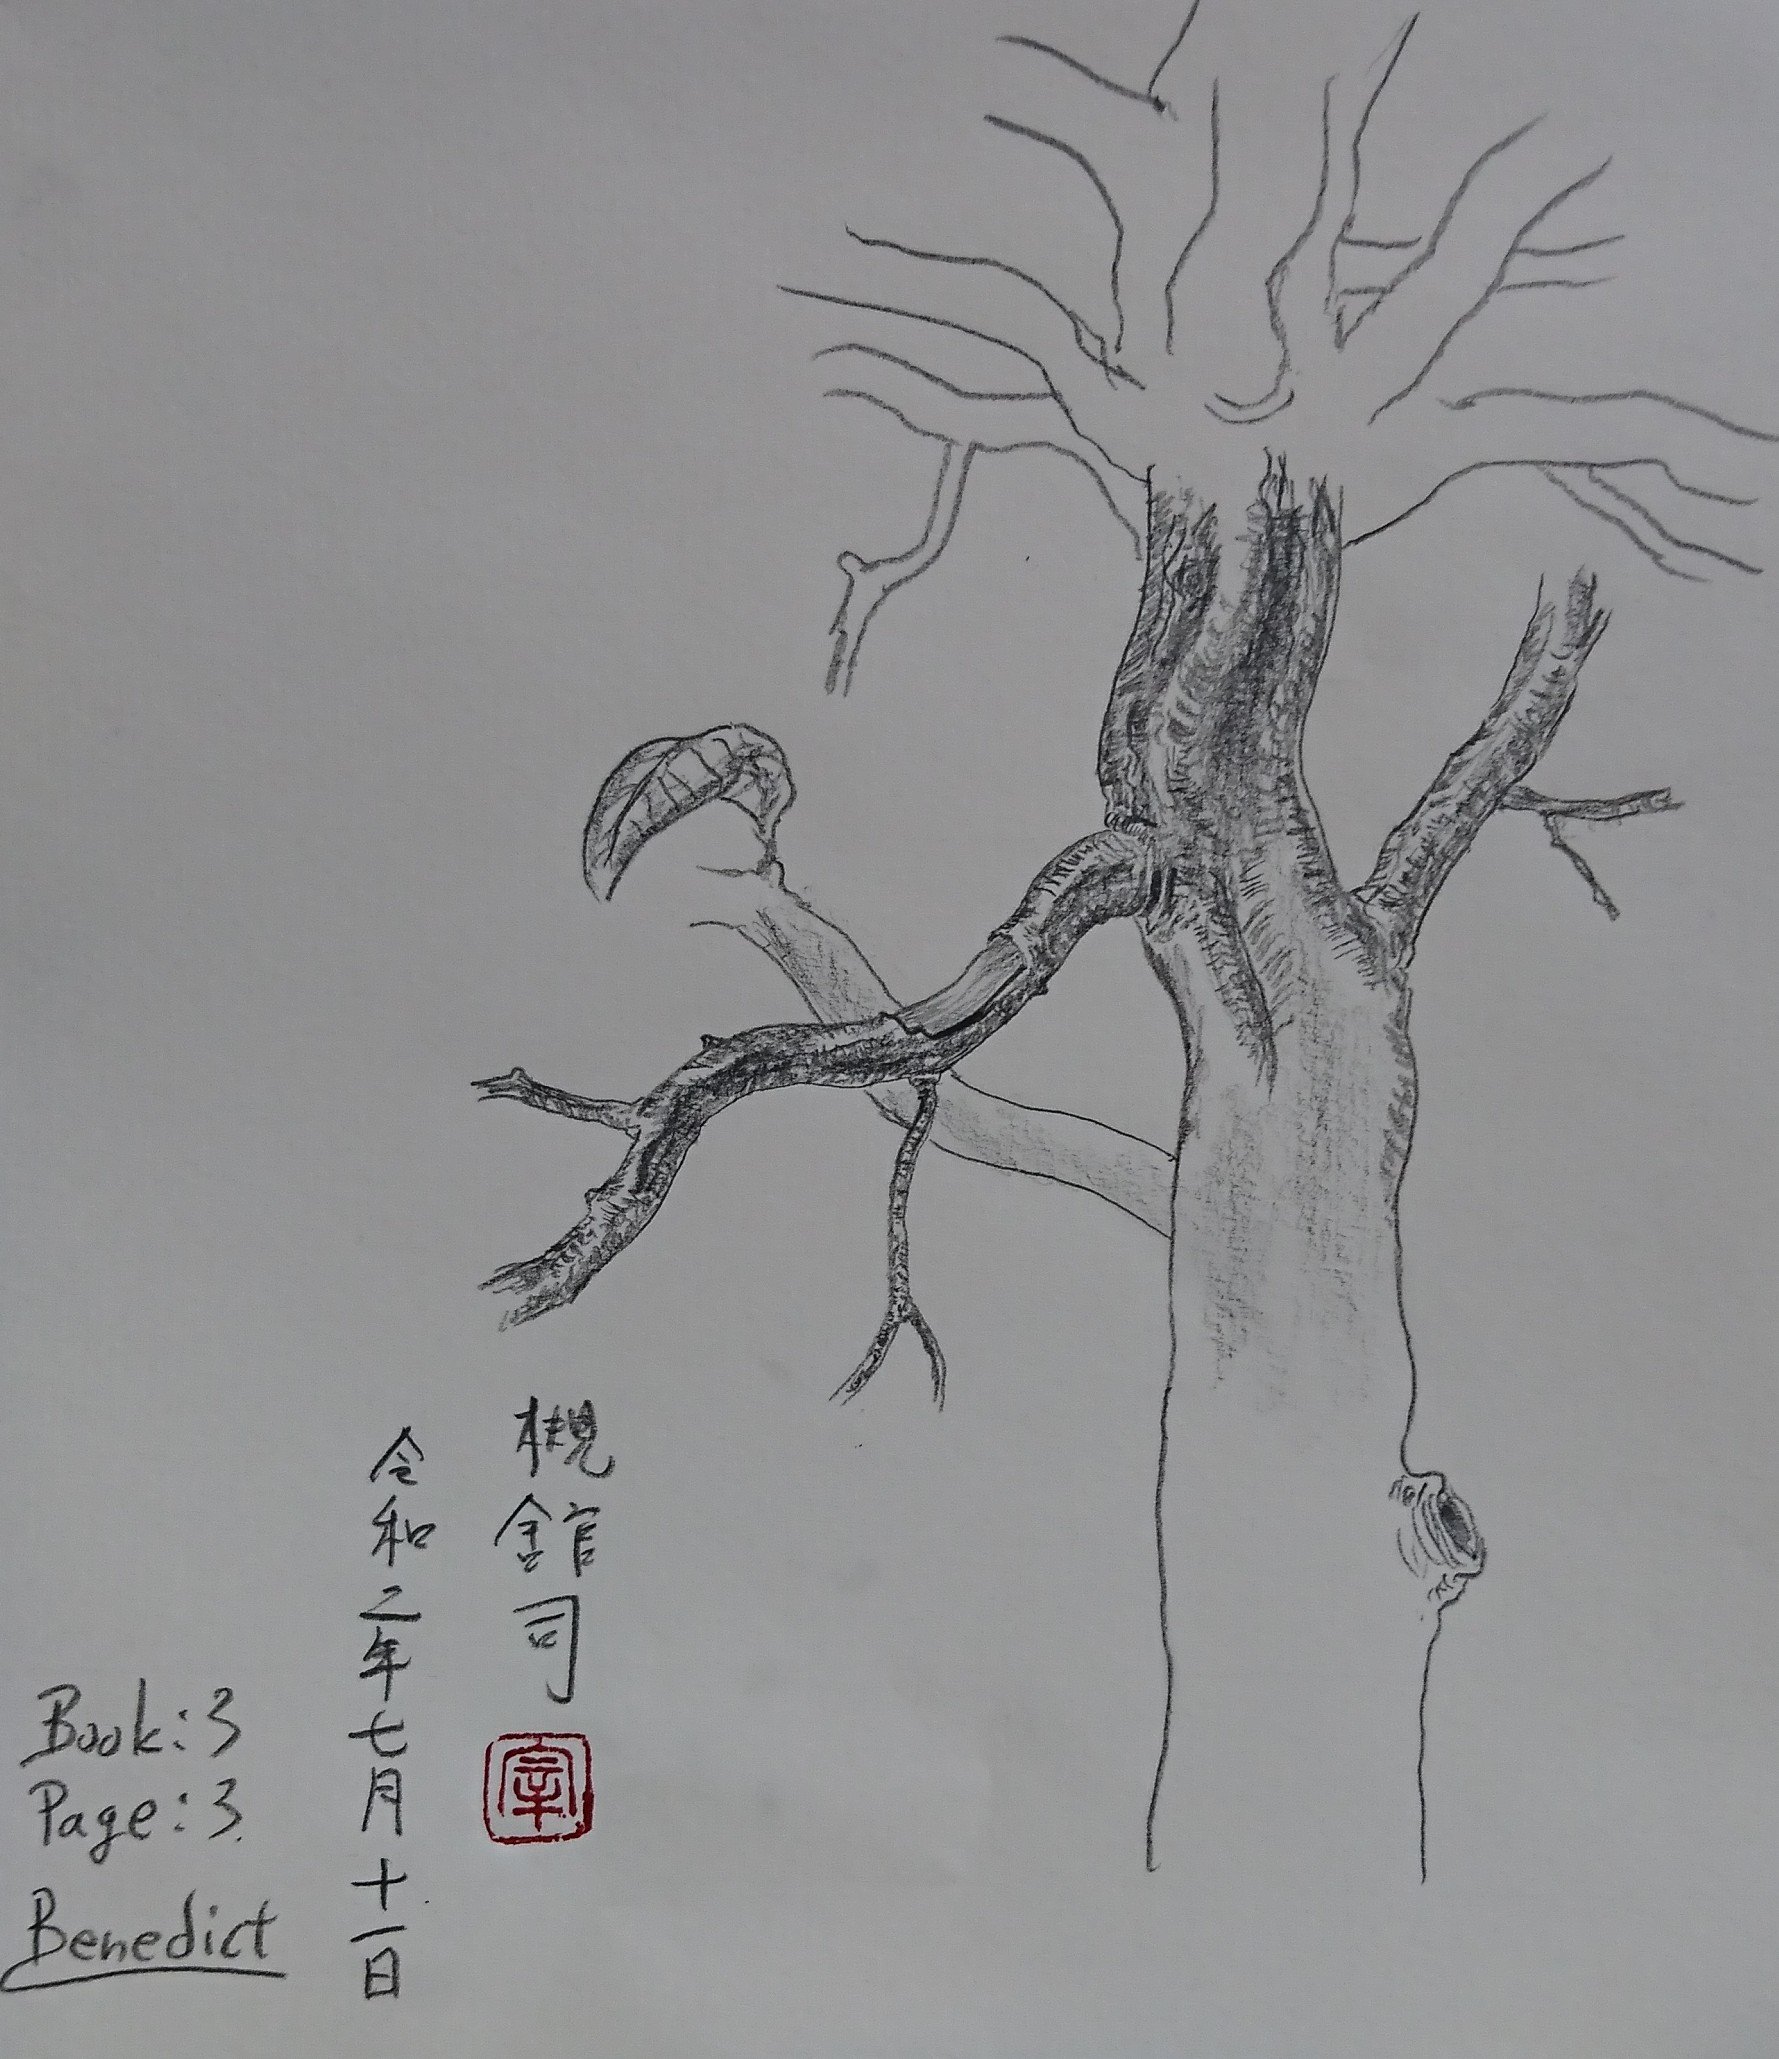 槻舘司
令和二年七月十一日
Book: 3
Page: 3.
Benedict